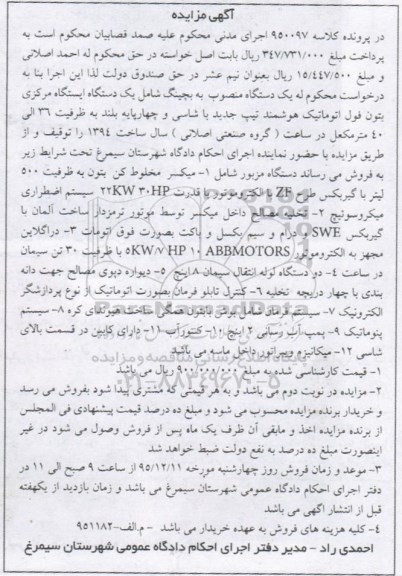 آگهی مزایده
در پرونده کلاسه ۹۵۰۰۹۷ اجرای مدنی محکوم علیه صمد قصابیان محکوم است به
پرداخت مبلغ ۳۴۷/۷۳۱/۰۰۰ ریال بابت اصل خواسته در حق محکوم له احمد اصلانی
و مبلغ ۱۵/۴۴۷/۵۰۰ ریال بعنوان نیم عشر در حق صندوق دولت لذا این اجرا بنا به
درخواست محکوم له یک دستگاه منصوب به بچینگ شامل یک دستگاه ایستگاه مرکزی
بتون فول اتوماتیک هوشمند تیپ جدید با شاسی و چهارپایه بلند به ظرفیت ۳۶ الی
۴۰ مترمکعل در ساعت ( گروه صنعتی اصلانی ) سال ساخت ۱۳۹۴ را توقیف و از
طریق مزایده با حضور نماینده اجرای احکام دادگاه شهرستان سیمرغ تحت شرایط زیر
به فروش می رساند دستگاه مزبور شامل ۱- میکسر مخلوط کن بتون به ظرفیت ۵۰۰
لیتر با گیربکس طرح ZF با الکتروموتور با قدرت ۲۲KW ۳۰HP سیستم اضطراری
میکروسوئیچ ۲- تخلیه مصالح داخل میکسر توسط موتور ترمزدار ساخت آلمان با
گیربکس SWE با درام و سیم بکسل و باکت بصورت فوق اتومات ۳- دراگلاین
مجهز به الکتروموتور ABBMOTORS ۱۰ HP ۵KW/۷ با ظرفیت ۳۰ تن سیمان
در ساعت ۴- دو دستگاه لوله انتقال سیمان ۸اینچ ۵- دیواره دپوی مصالح جهت دانه
بندی با چهار دریچه تخلیه ۶- کنترل تابلو فرمان بصورت اتوماتیک از نوع پردازشگر
الکترونیک ۷- سیستم فرمان شامل توزین باتون همگی ساخت هیوندای کره ۸- سیستم
پنوماتیک ۹- پمپ آب رسانی ۲ اینچ ۱۰- کنتور آب ۱۱- دارای کابین در قسمت بالای
شاسی ۱۲- میکانیزم ویبراتور داخل ماسه می باشد
۱- قیمت کارشناسی شده به مبلغ ۹۰۰/۰۰۰/۰۰۰ ریال می باشد
۲- مزایده در نوبت دوم می باشد و به هر قیمتی که مشتری پیدا شود بفروش می رسد
و خریدار برنده مزایده محسوب می شود و مبلغ ده درصد قیمت پیشنهادی فی المجلس
از برنده مزایده اخذ و مابقی آن ظرف یک ماه پس از فروش وصول می شود در غیر
اینصورت مبلغ ده درصد به نفع دولت ضبط خواهد شد
۳- موعد و زمان فروش روز چهارشنبه مورخه ۹۵/۱۲/۱۱ از ساعت ۹ صبح الی ۱۱ در
دفتر اجرای احکام دادگاه عمومی شهرستان سیمرغ می باشد و زمان بازدید از یکهفته
قبل از انتشار آگهی می باشد
۴- کلیه هزینه های فروش به عهده خریدار می باشد - م.الف-۹۵۱۱۸۲
احمدی راد - مدیر دفتر اجرای احکام دادگاه عمومی شهرستان سیمرغ
ParsNamadData
پایگاه اطلاع رسانی مناقصه و مزایده
۰۲۱-۸۸۳۴۹۶۷۰-۵